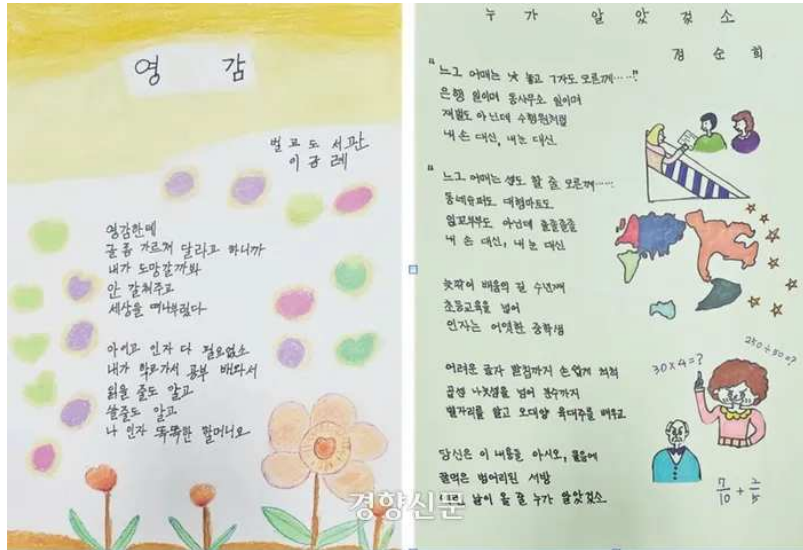 영 감
벌교도서관
이광례
영감한테
글 좀 가르쳐 달라고 하니까
내가 도망갈까봐
안 갈쳐주고
세상을 떠나부렀다
아이고 인자 다 필요없소
내가 학교가서 공부 배와서
읽을 줄도 알고
쓸줄도 알고
나 인자 똑똑한 할머니요
누가 알았겄소
정순희
"느그 어매는 낫 놓고 ㄱ자도 모른께……"
은행 일이며 동사무소 일이며
재벌도 아닌데 수행원처럼
내 손 대신, 내 눈 대신
"느그 어매는 셈도 할 줄 모른께……
동네슈퍼도 대형마트도
잉꼬부부도 아닌데 졸졸졸졸
내 손 대신, 내 눈 대신
늦깎이 배움의 길 수년째
초등교육을 넘어
인자는 어엿한 중학생
어려운 글자 받침까지 손쉽게 척척
곱셈 나눗셈을 넘어 분수까지
별자리를 알고 오대양 육대주를 배우고
당신은 이 내용을 아시오, 물음에
꿀먹은 벙어리된 서방
날이 올 줄 누가 알았겄소
30×4=?
250÷50=?
7/10 + 2/5
경향신문